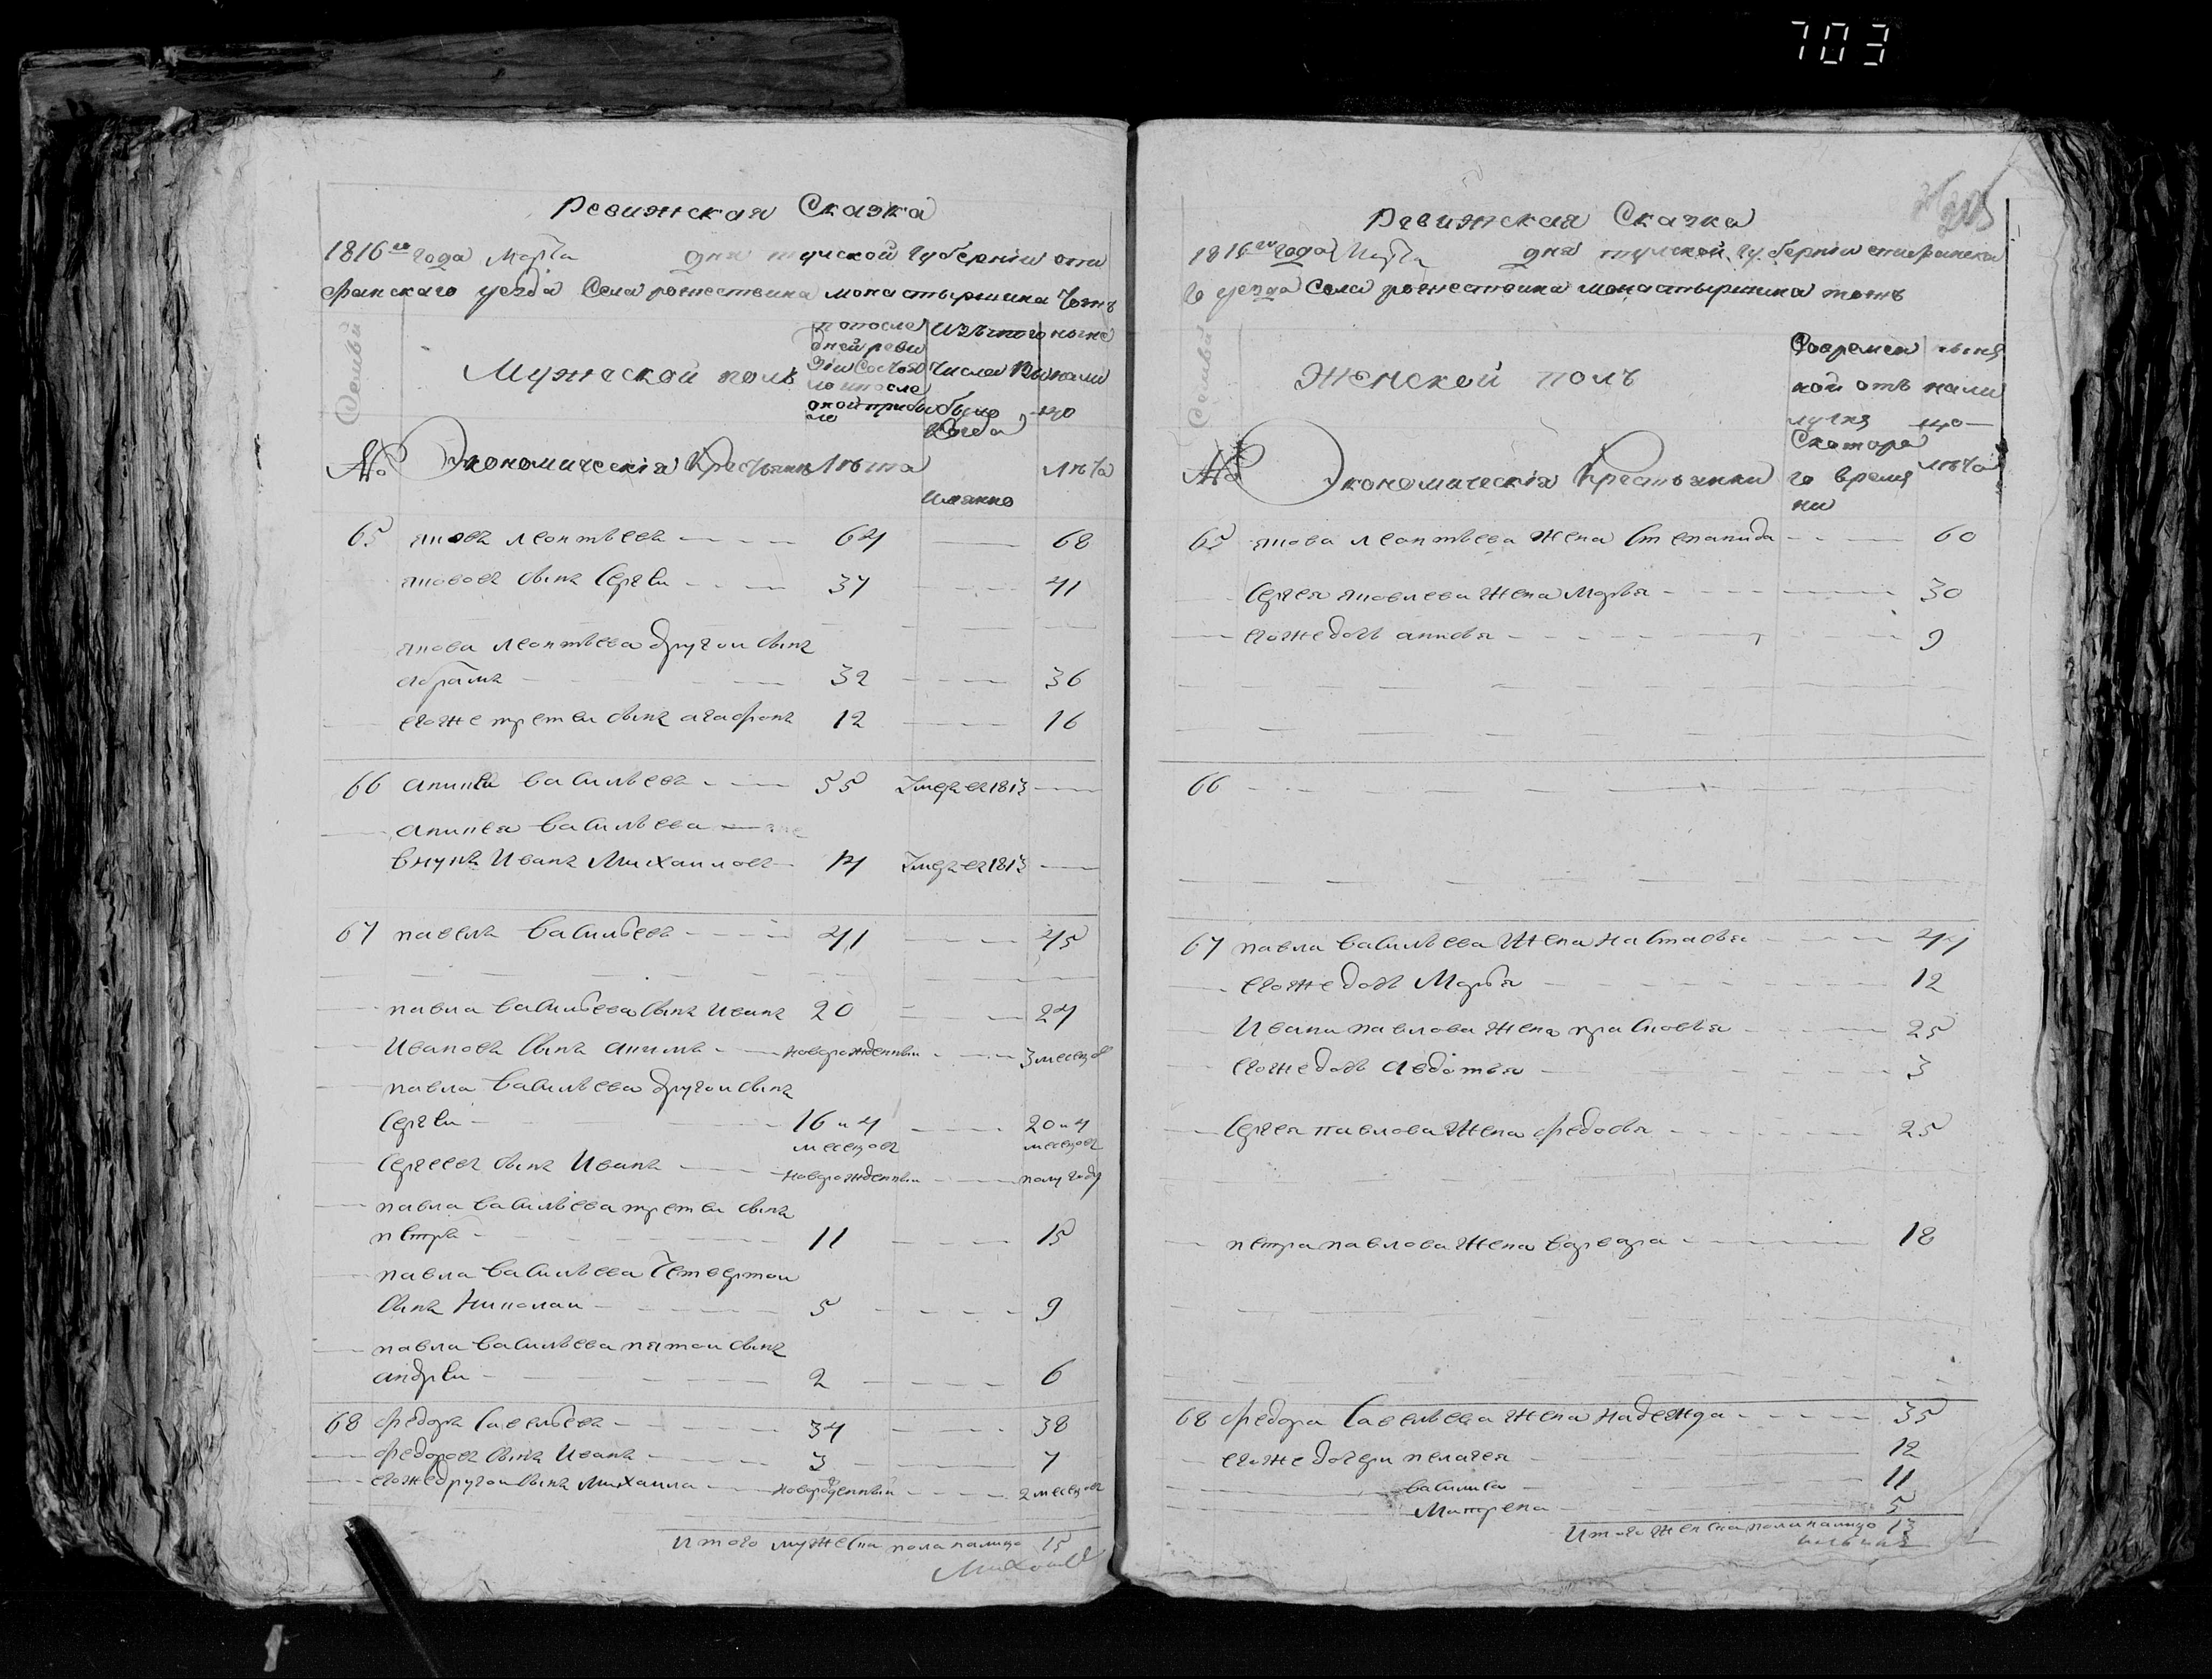 703
Ревижская Сказка
1816го года Марта дня тулской губерніи епи
фанскаго уезда Села рожествина монастырщина тожъ
Семьи
Мужеской полъ
попосле
дней реви
зіи состоя
ло и после
оной прибы
ло
Изътого
числа вы
было
Когда
имянно
ныне
нали
цо
№ Экономическія Крестьяня Лета Лета
65 яковъ леонтьевъ 64 68
яковов сынъ Сергеи 37 41
якова леонтьева другои сынъ
абрамъ 32 36
егоже третеи сынъ агафонъ 12 16
66 аникеи васильевъ 55 Умеръ въ 1813
аникея васильева
внукъ Иванъ Михаиловъ 14 Умеръ въ 1813
67 павелъ васильевъ 41 45
павла васильева сынъ Иванъ 20 24
Ивановъ сынъ акимъ новорожденныи 3 месецов
павла васильева другои сынъ
Сергеи 16 и 4 20 и 4
месецовъ месецовъ
Сергеевъ сынъ Иванъ новорожденныи полугоду
павла васильева третеи сынъ
петръ 11 15
павла васильева Четвертои
сынъ николаи 5 9
павла васильева пятои сынъ
андреи 2 6
68 федоръ Савельевъ 34 38
федоровъ сынъ Иванъ 3 7
егоже другои сынъ михаила новорожденныи 2 месецовъ
Итого мужеска пола налицо 15
Ревижская Сказка
205
1816го года Марта дня тулской губерніи епифанска
го уезда Села рожествина монастырщина тожъ
Семьи
Женской полъ
Вовремен
ной отъ
лучке
Скотора
го време
ни
ныне
нали
цо
лета
№ Экономическія Крестьянки
65 якова леонтьева жена Степанида 60
Сергея яковлева жена Марья 30
егоже дочь анисья 9
66
67 павла васильева жена настасья 44
егоже дочь Марья 12
Ивана павлова жена прасковья 25
егоже дочь авдотья 3
Сергея павлова жена федосья 25
петра павлова жена варвара 18
68 федора Савельева жена надежда 35
егоже дочери пелагея 12
василиса 11
Матрена 5
Итого женска пола налицо 13